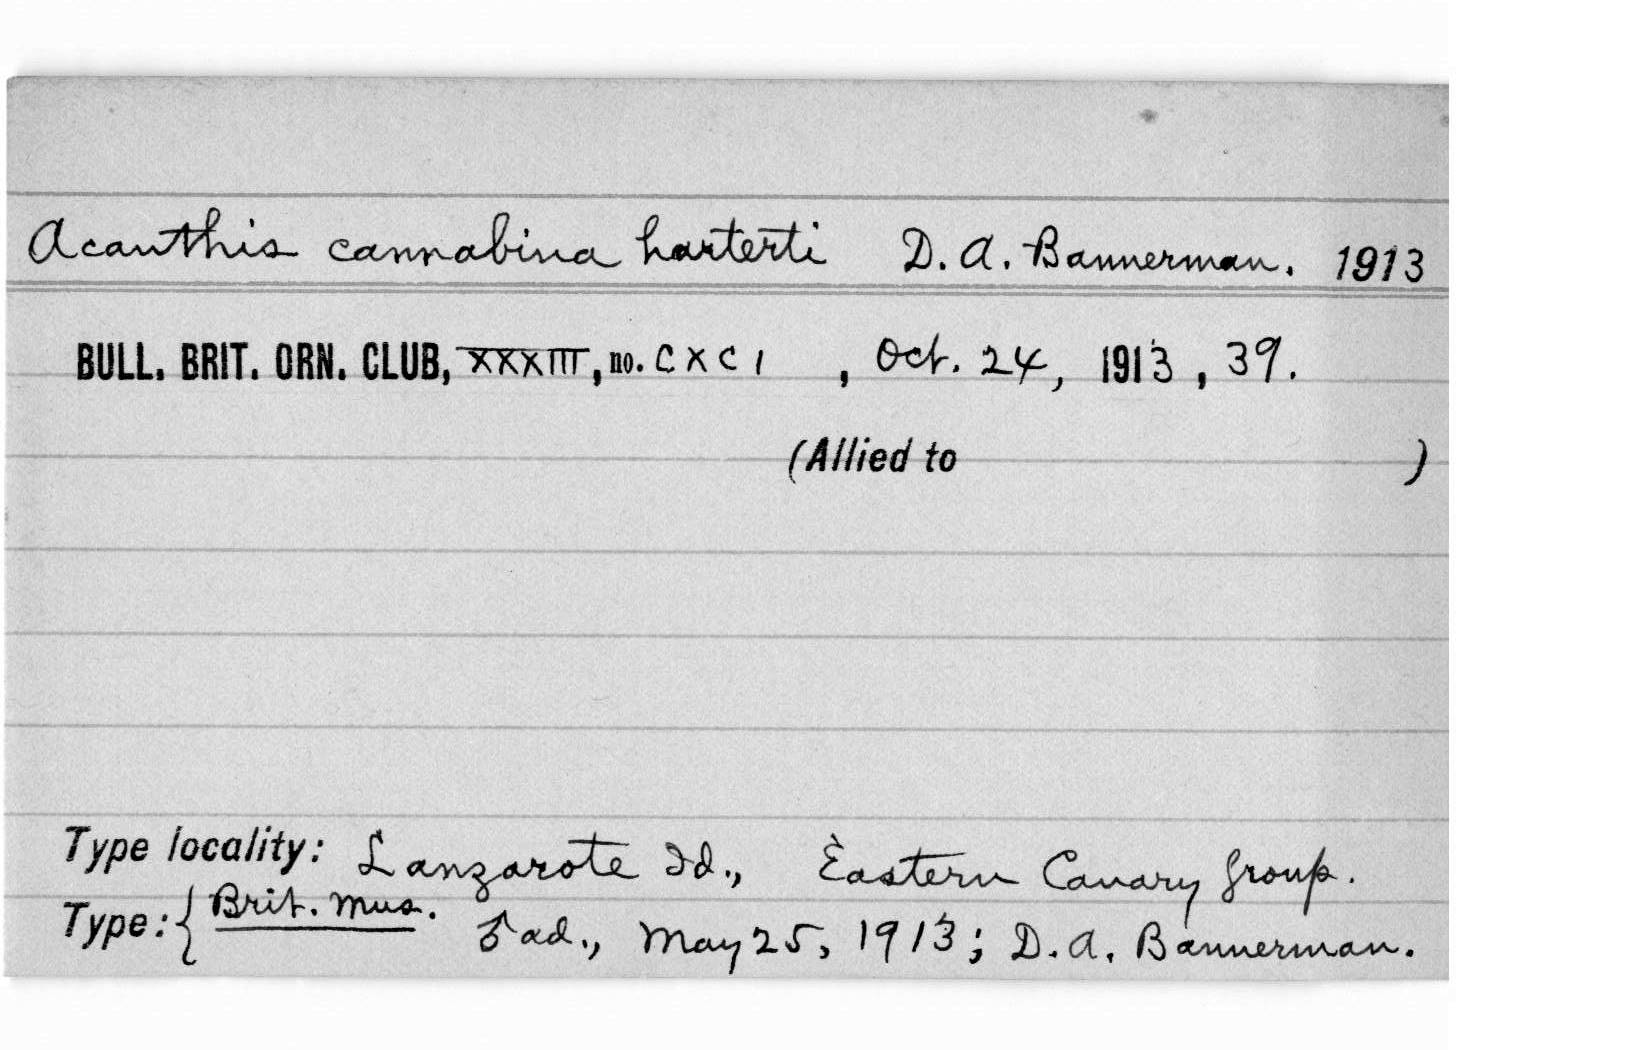 Acanthis cannabina harterti D. A. Bannerman. 1913
BULL. BRIT. ORN. CLUB, XXXIII, no. CXCI , Oct. 24, 1913, 39.
(Allied to )
Type locality: Lanzarote Id., Eastern Canary Group.
Type: { Brit. Mus. ♂ ad., May 25, 1913; D. A. Bannerman.